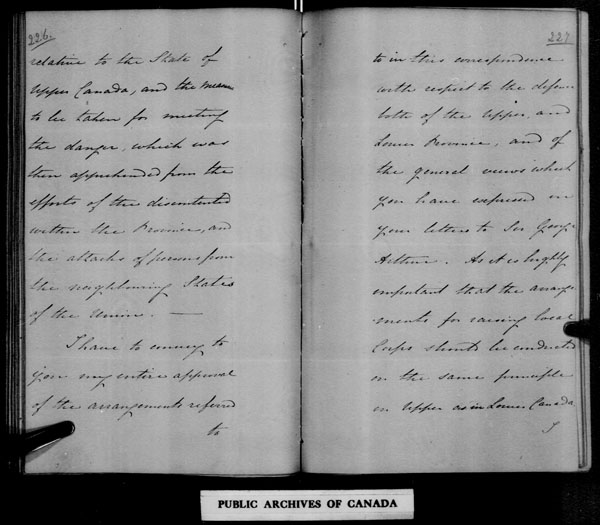 226.
relative to the State of
Upper Canada, and the means
to be taken for meeting
the danger, which was
then apprehended from the
efforts of the discontented
within the Province, and
the attacks of persons from
the neighbouring States
of the Union. —
I have to convey to
you my entire approval
of the arrangements referred
to
227
to in this correspondence
with respect to the defence
both of the Upper, and
Lower Province, and of
the general views which
you have expressed in
your letters to Sir George
Arthur. As it is highly
important that the arrange-
-ments for raising local
Corps should be conducted
on the same principle
in Upper as in Lower Canada
I
PUBLIC ARCHIVES OF CANADA